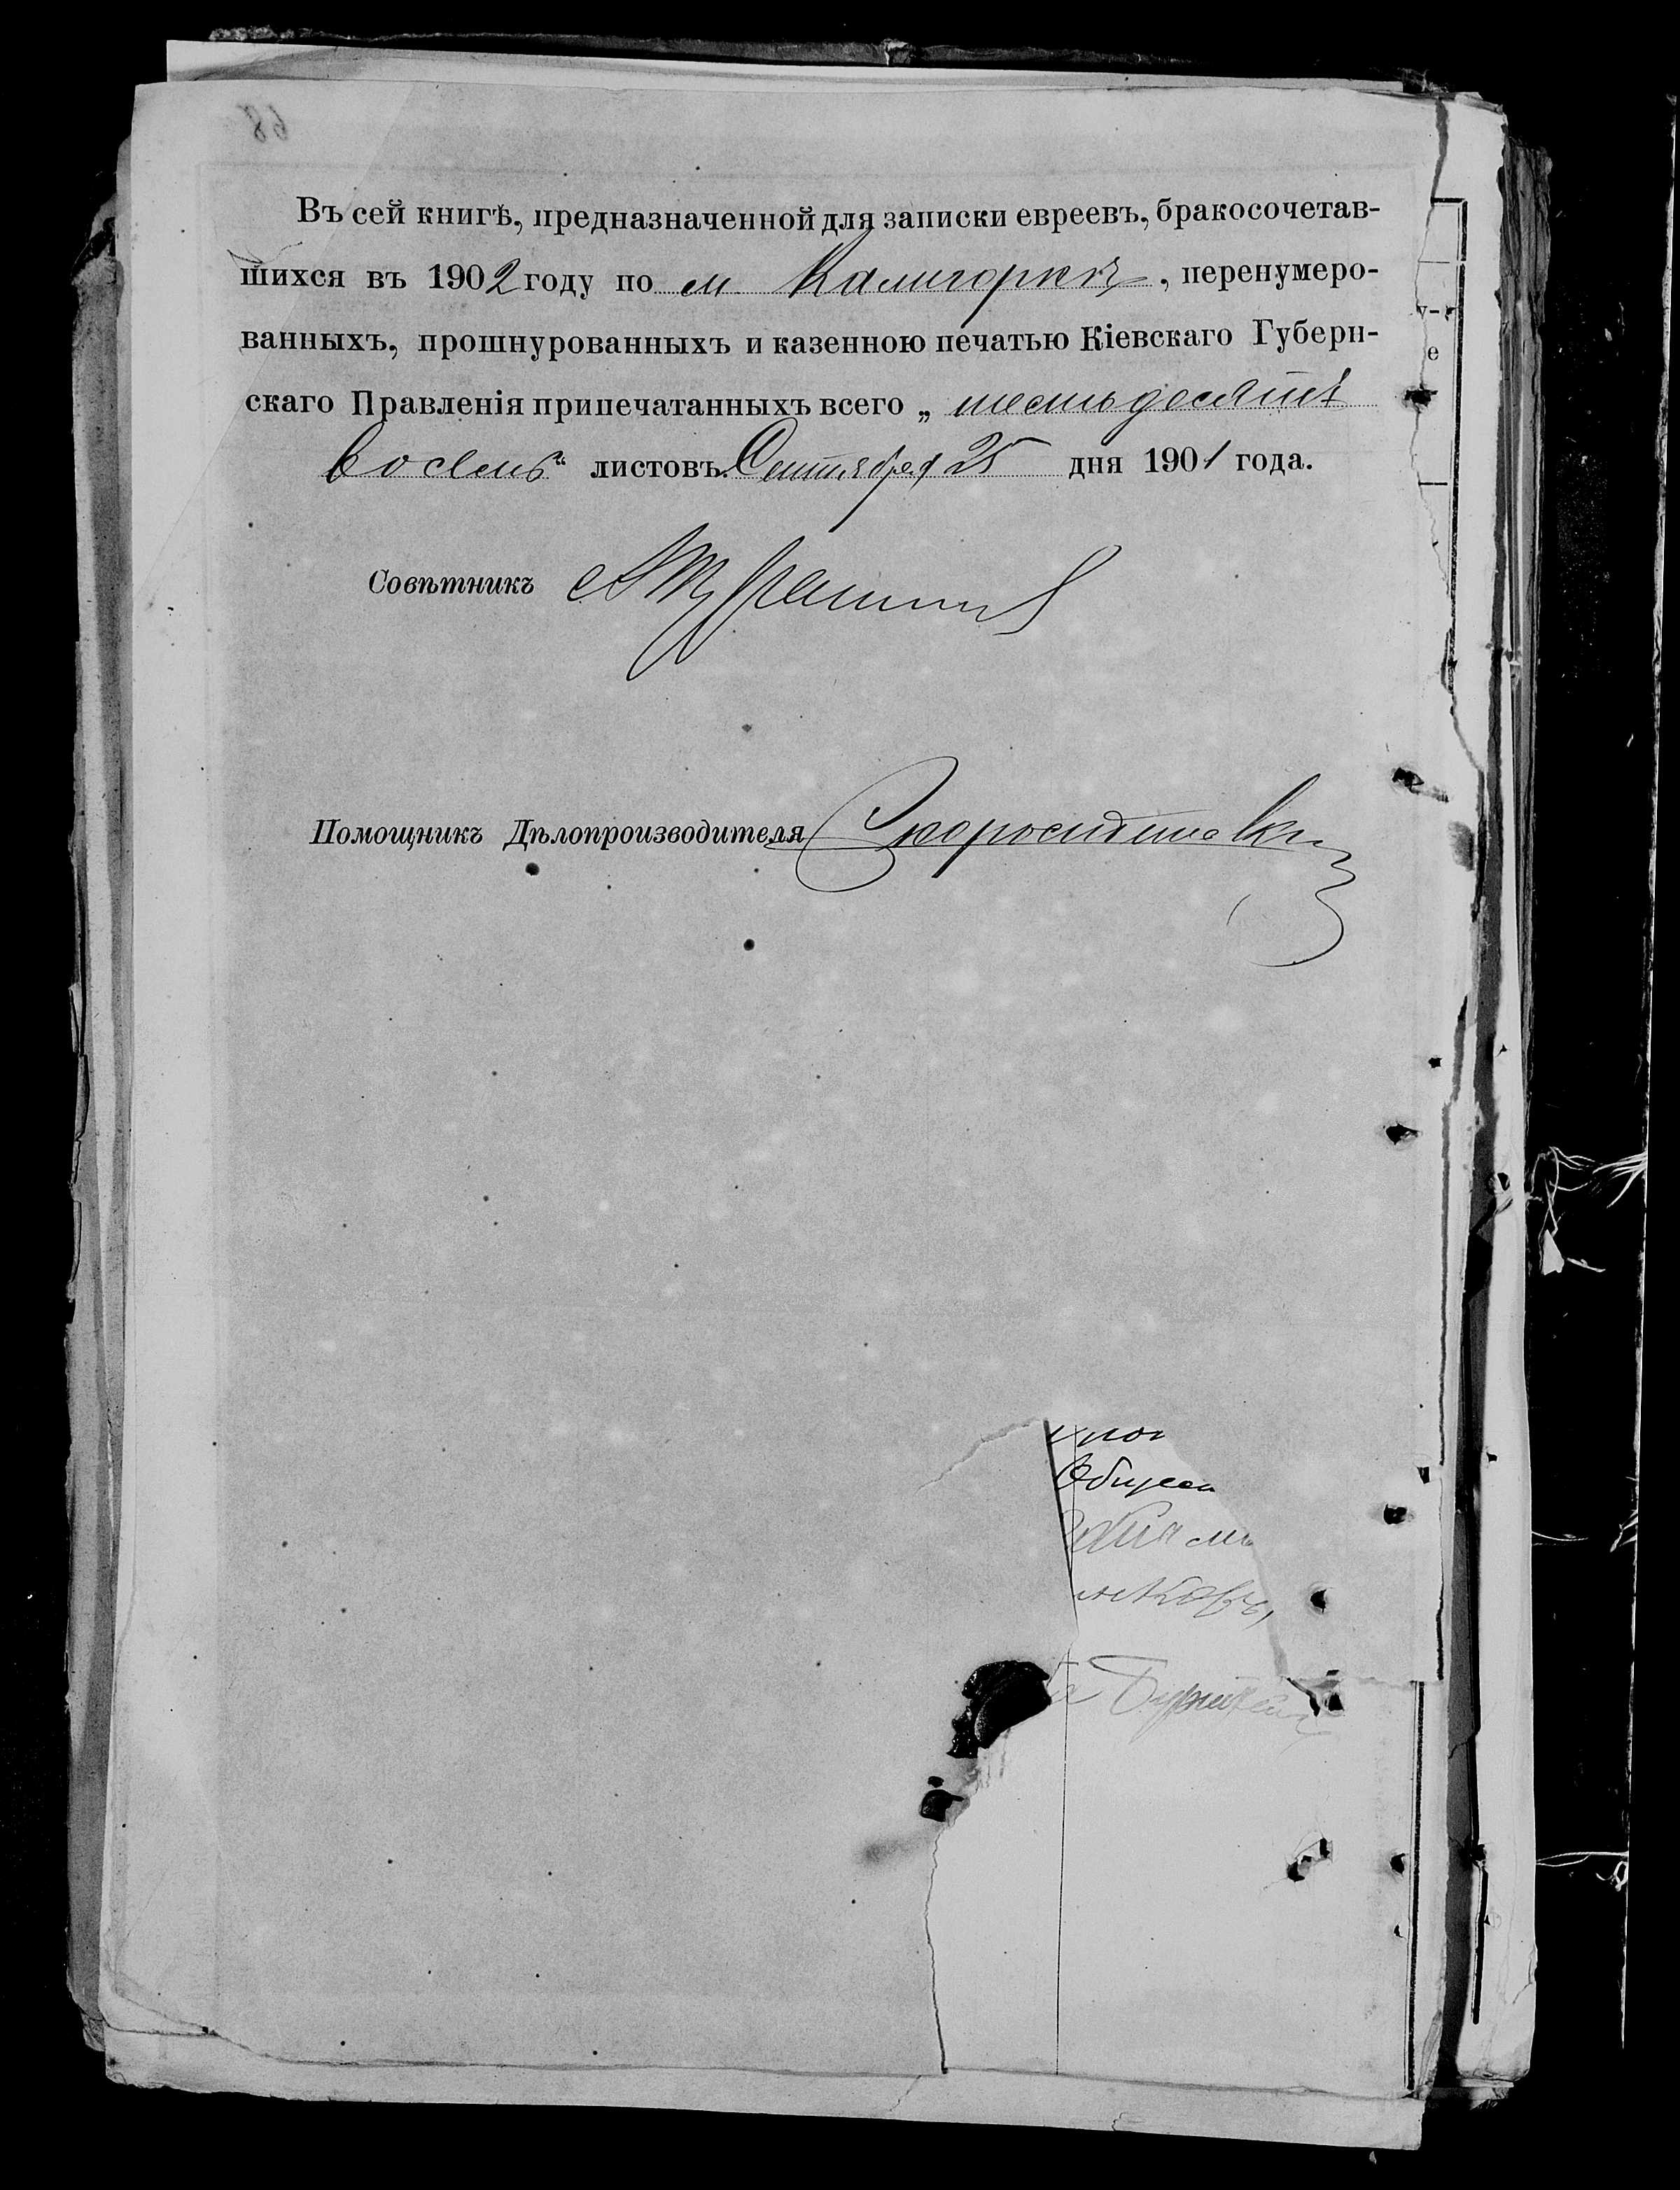 68
Въ сей книгѣ, предназначенной для записки евреевъ, бракосочетав-
шихся въ 1902 году по м. Калигоркѣ, перенумеро-
ванныхъ, прошнурованныхъ и казенною печатью Кіевскаго Губерн-
скаго Правленія припечатанныхъ всего „ шестьдесятъ
восемь“ листовъ. Сентября 25 дня 1901 года.
Совѣтникъ
Помощникъ Дѣлопроизводителя